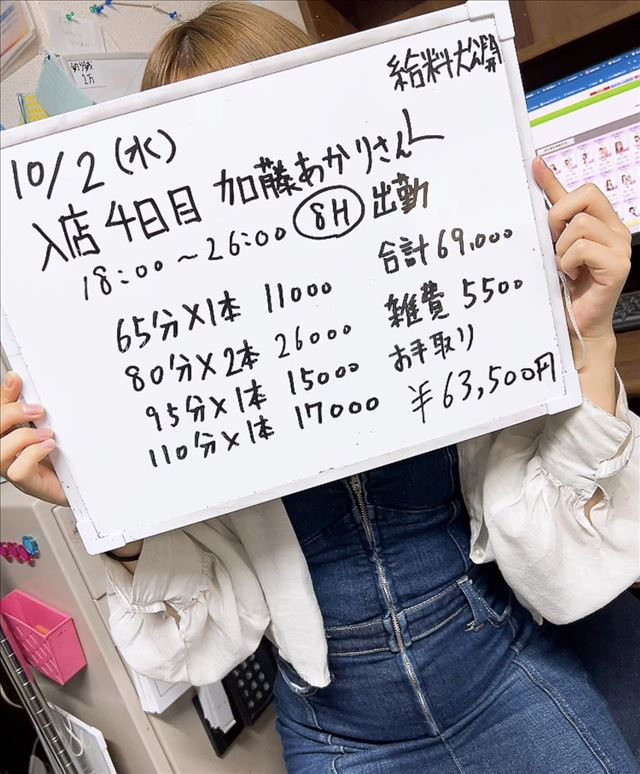 給料大公開
10/2 (水)
入店4日目 加藤あかりさん
18:00～26:00 8H 出勤
65分×1本 11000
80分×2本 26000
95分×1本 15000
110分×1本 17000
合計 69,000
雑費 5500
お手取り
¥63,500円